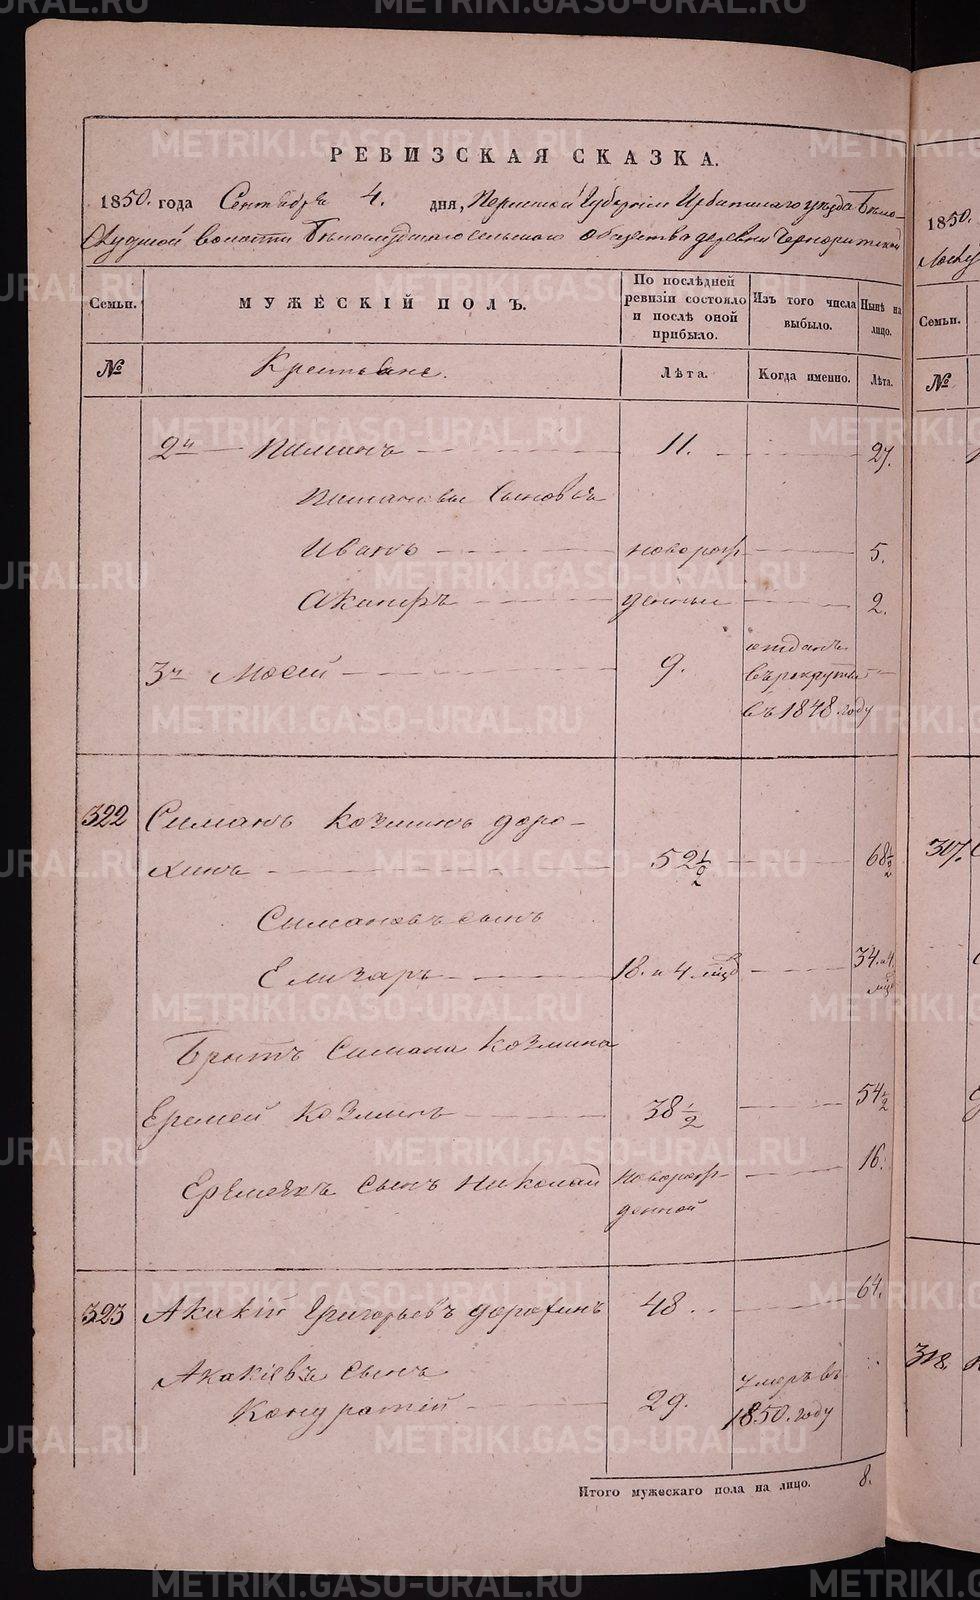 РЕВИЗСКАЯ СКАЗКА.
1850. года Сентября 4. дня, Пермской Губернии Ирбитскаго уезда Бело-
Слудской волости Белослудскаго сельскаго общества деревни
Семьи. МУЖЕСКІЙ ПОЛЪ. По послѣдней ревизіи состояло и послѣ оной прибыло. Изъ того числа выбыло. Нынѣ на лицо.
№ Крестьяне. Лѣта. Когда именно. Лѣта.
2й Пиминъ 11. 27.
Сыновья
Иванъ новорож 5.
Акинфъ денные 2.
3й Мосей 9. отданъ въ рекруты въ 1848 году
322 Симанъ Козминъ Доро-
хинъ 52 1/2 68 1/2
Симановъ сынъ
Елизаръ 18. и 4 мѣс 34. и 4. мѣс
Братъ Симана Козмина
Еремей Козминъ 38 1/2 54 1/2
Еремеевъ сынъ Николай новорож-
денной 16.
323 Акакій Григорьевъ Дорохинъ 48. 64.
Акакіевъ сынъ
Кондратій 29. умеръ въ 1850. году
Итого мужескаго пола на лицо. 8.
1850.
Семьи.
№
307.
318.
METRIKI.GASO-URAL.RU